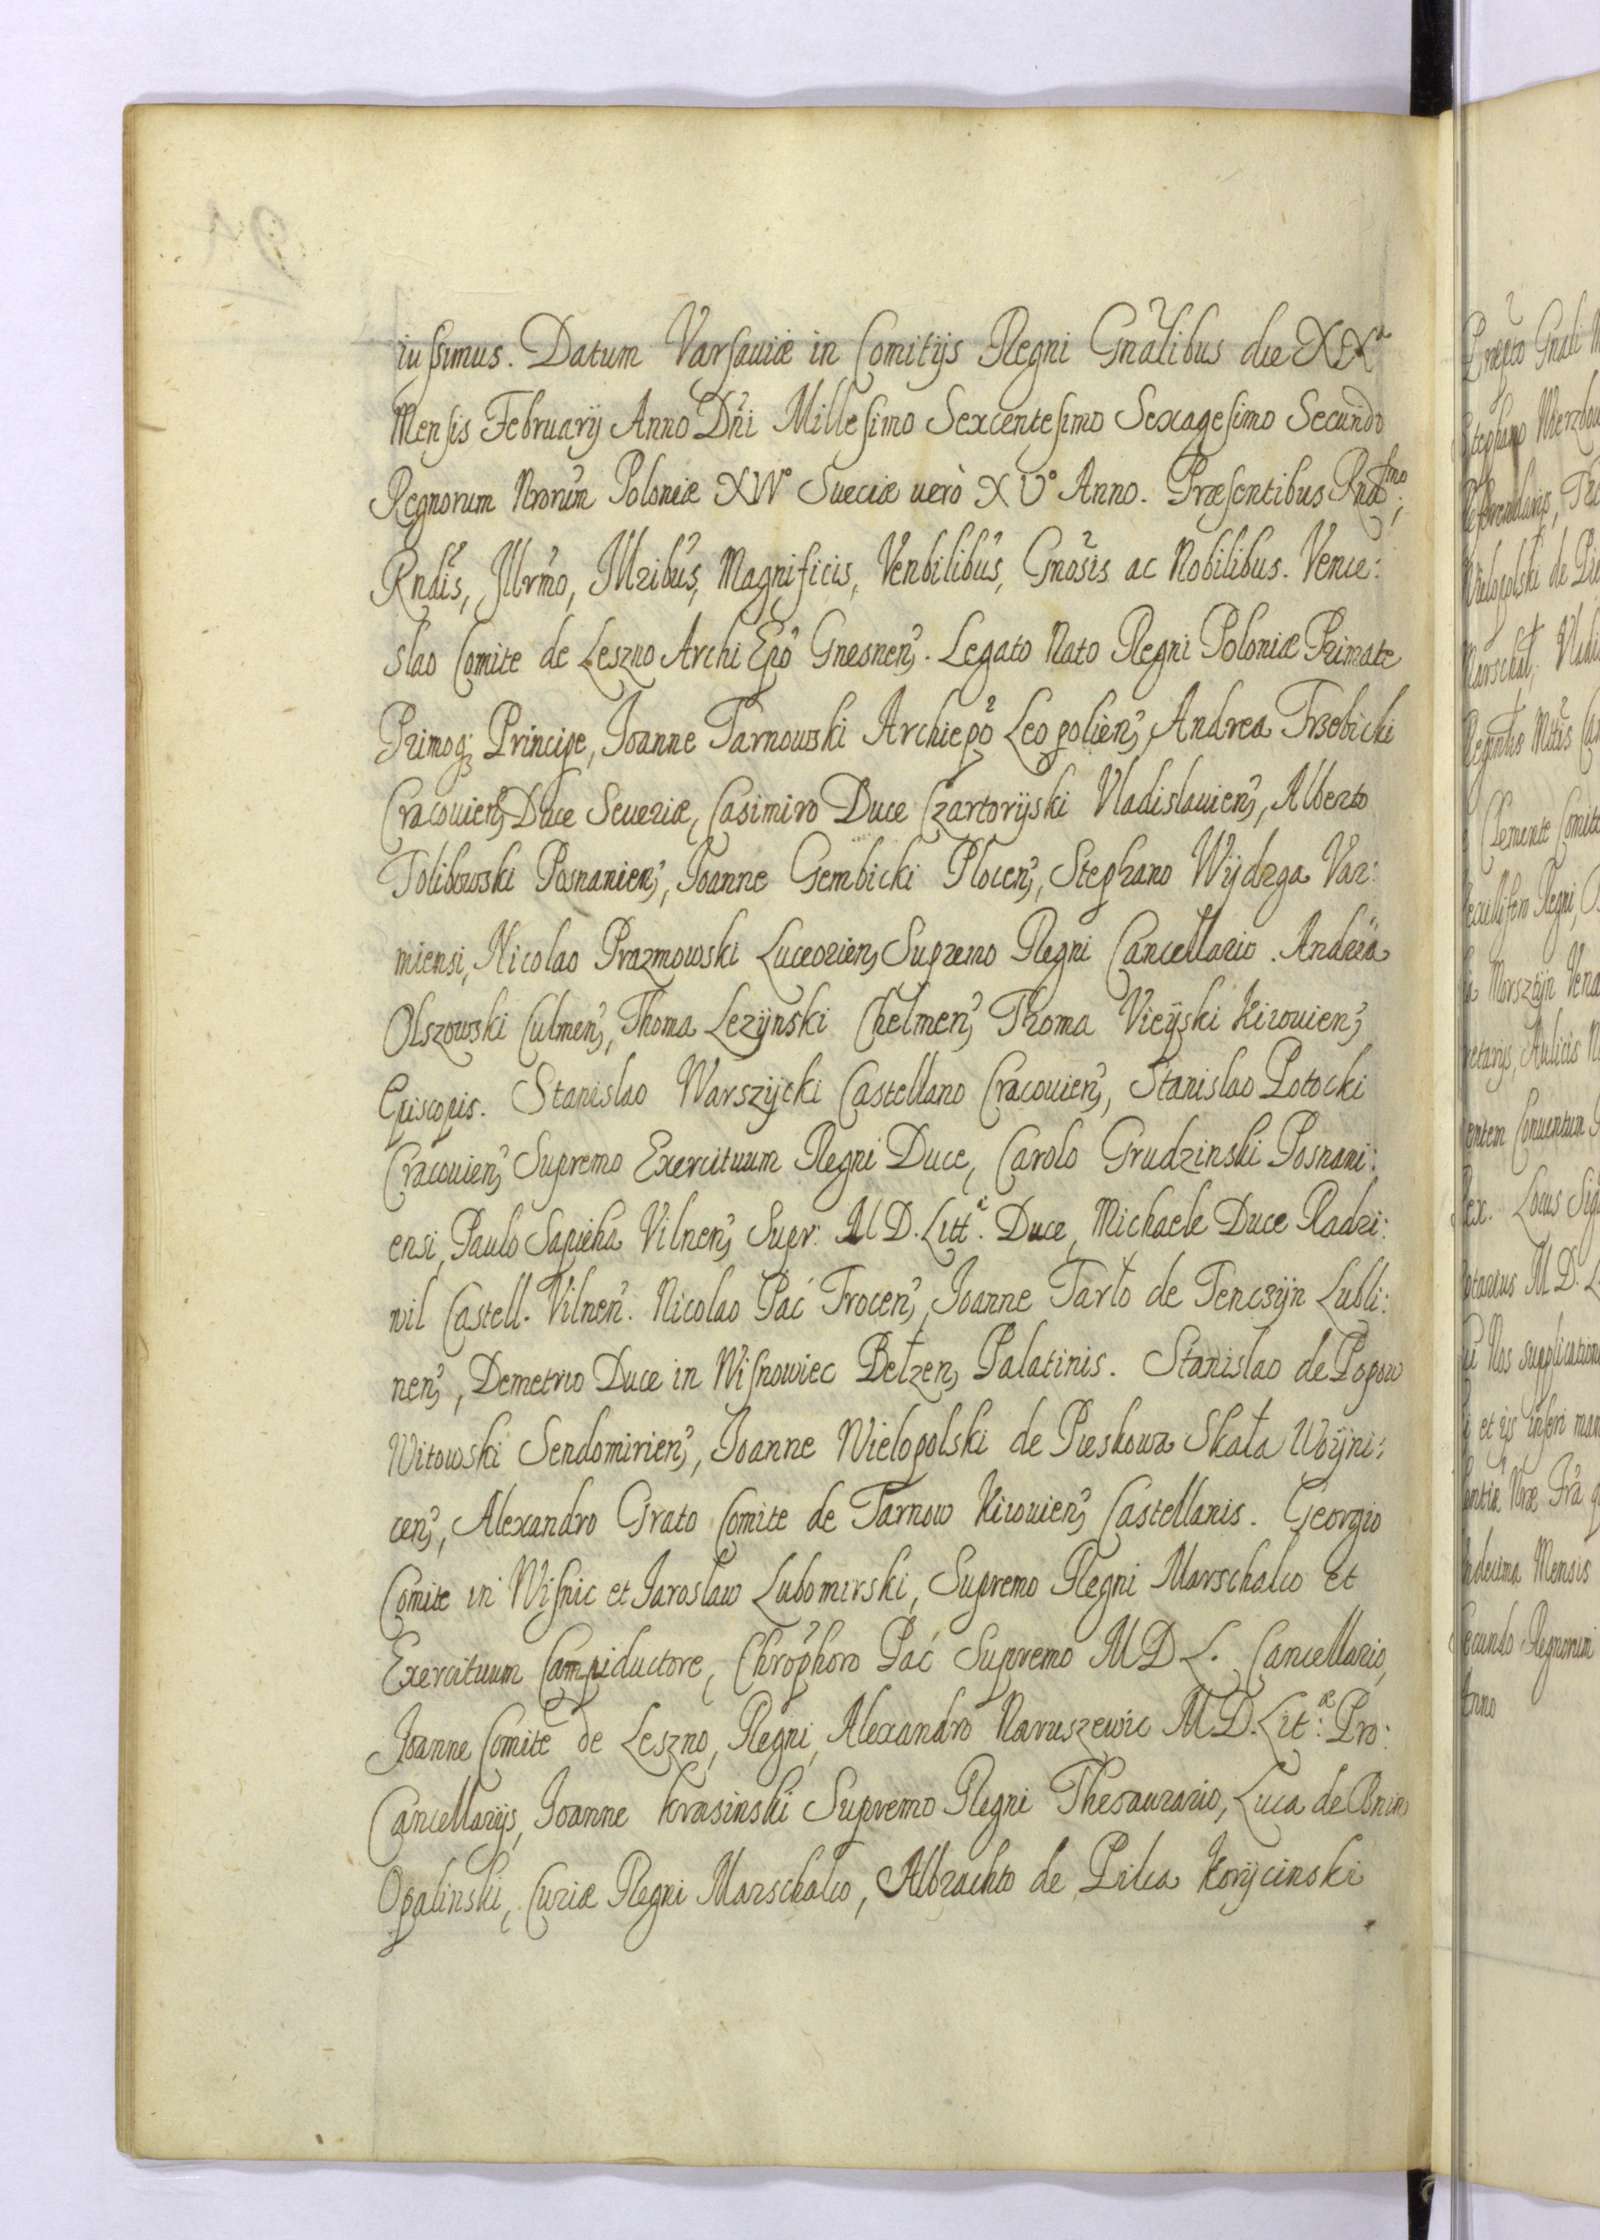 iussimus. Datum Varsauiæ in Comitijs Regni Gnalibus die XXa
Mensis Februarij Anno Dni Millesimo Sexcentesimo Sexagesimo Secundo
Regnorum Nrorum Poloniæ XIV° Sueciæ uerò XV° Anno. Præsentibus Rndsmo,
Rndis, Illrmo, Illribus, Magnificis, Venbilibus, Gnosis ac Nobilibus. Vence:
slao Comite de Leszno Archi Epo Gnesnen. Legato Nato Regni Poloniæ Primate
Primoq; Principe, Joanne Tarnowski Archiepo Leopolien, Andrea Trzebicki
Cracouien, Duce Seueriæ, Casimiro Duce Czartorijski Vladislauien, Alberto
Tolibowski Posnanien, Joanne Gembicki Plocen, Stephano Wijdzga Var:
miensi, Nicolao Prazmowski Luceorien, Supremo Regni Cancellario. Andrea
Olszowski Culmen, Thoma Lezijnski Chelmen, Thoma Vieijski Kiiouien,
Episcopis. Stanislao Warszijcki Castellano Cracouien, Stanislao Potocki
Cracouien, Supremo Exercituum Regni Duce, Carolo Grudzinski Posnani:
ensi, Paulo Sapieha Vilnen, Supr: M D. Litt.æ Duce, Michaele Duce Radzi:
wil Castell. Vilnen. Nicolao Pać Trocen, Joanne Tarło de Tenczijn Lubli:
nen, Demetrio Duce in Wisnowiec Bełzen, Palatinis. Stanislao de Popow
Witowski Sendomirien, Joanne Wielopolski de Pieskowa Skała Woijni:
cen, Alexandro Grato Comite de Tarnow Kiiouien, Castellanis. Georgio
Comite in Wisnic et Jaroslaw Lubomirski, Supremo Regni Marschalco et
Exercituum Campiductore, Chrophoro Pać Supremo M D L. Cancellario,
Joanne Comite de Leszno, Regni, Alexandro Naruszewic M.D. Lit:æ Pro:
Cancellarijs, Joanne Krasinski Supremo Regni Thesaurario, Luca de Bnin
Opalinski, Curiæ Regni Marschalco, Albrachto de Pilca Korijcinski